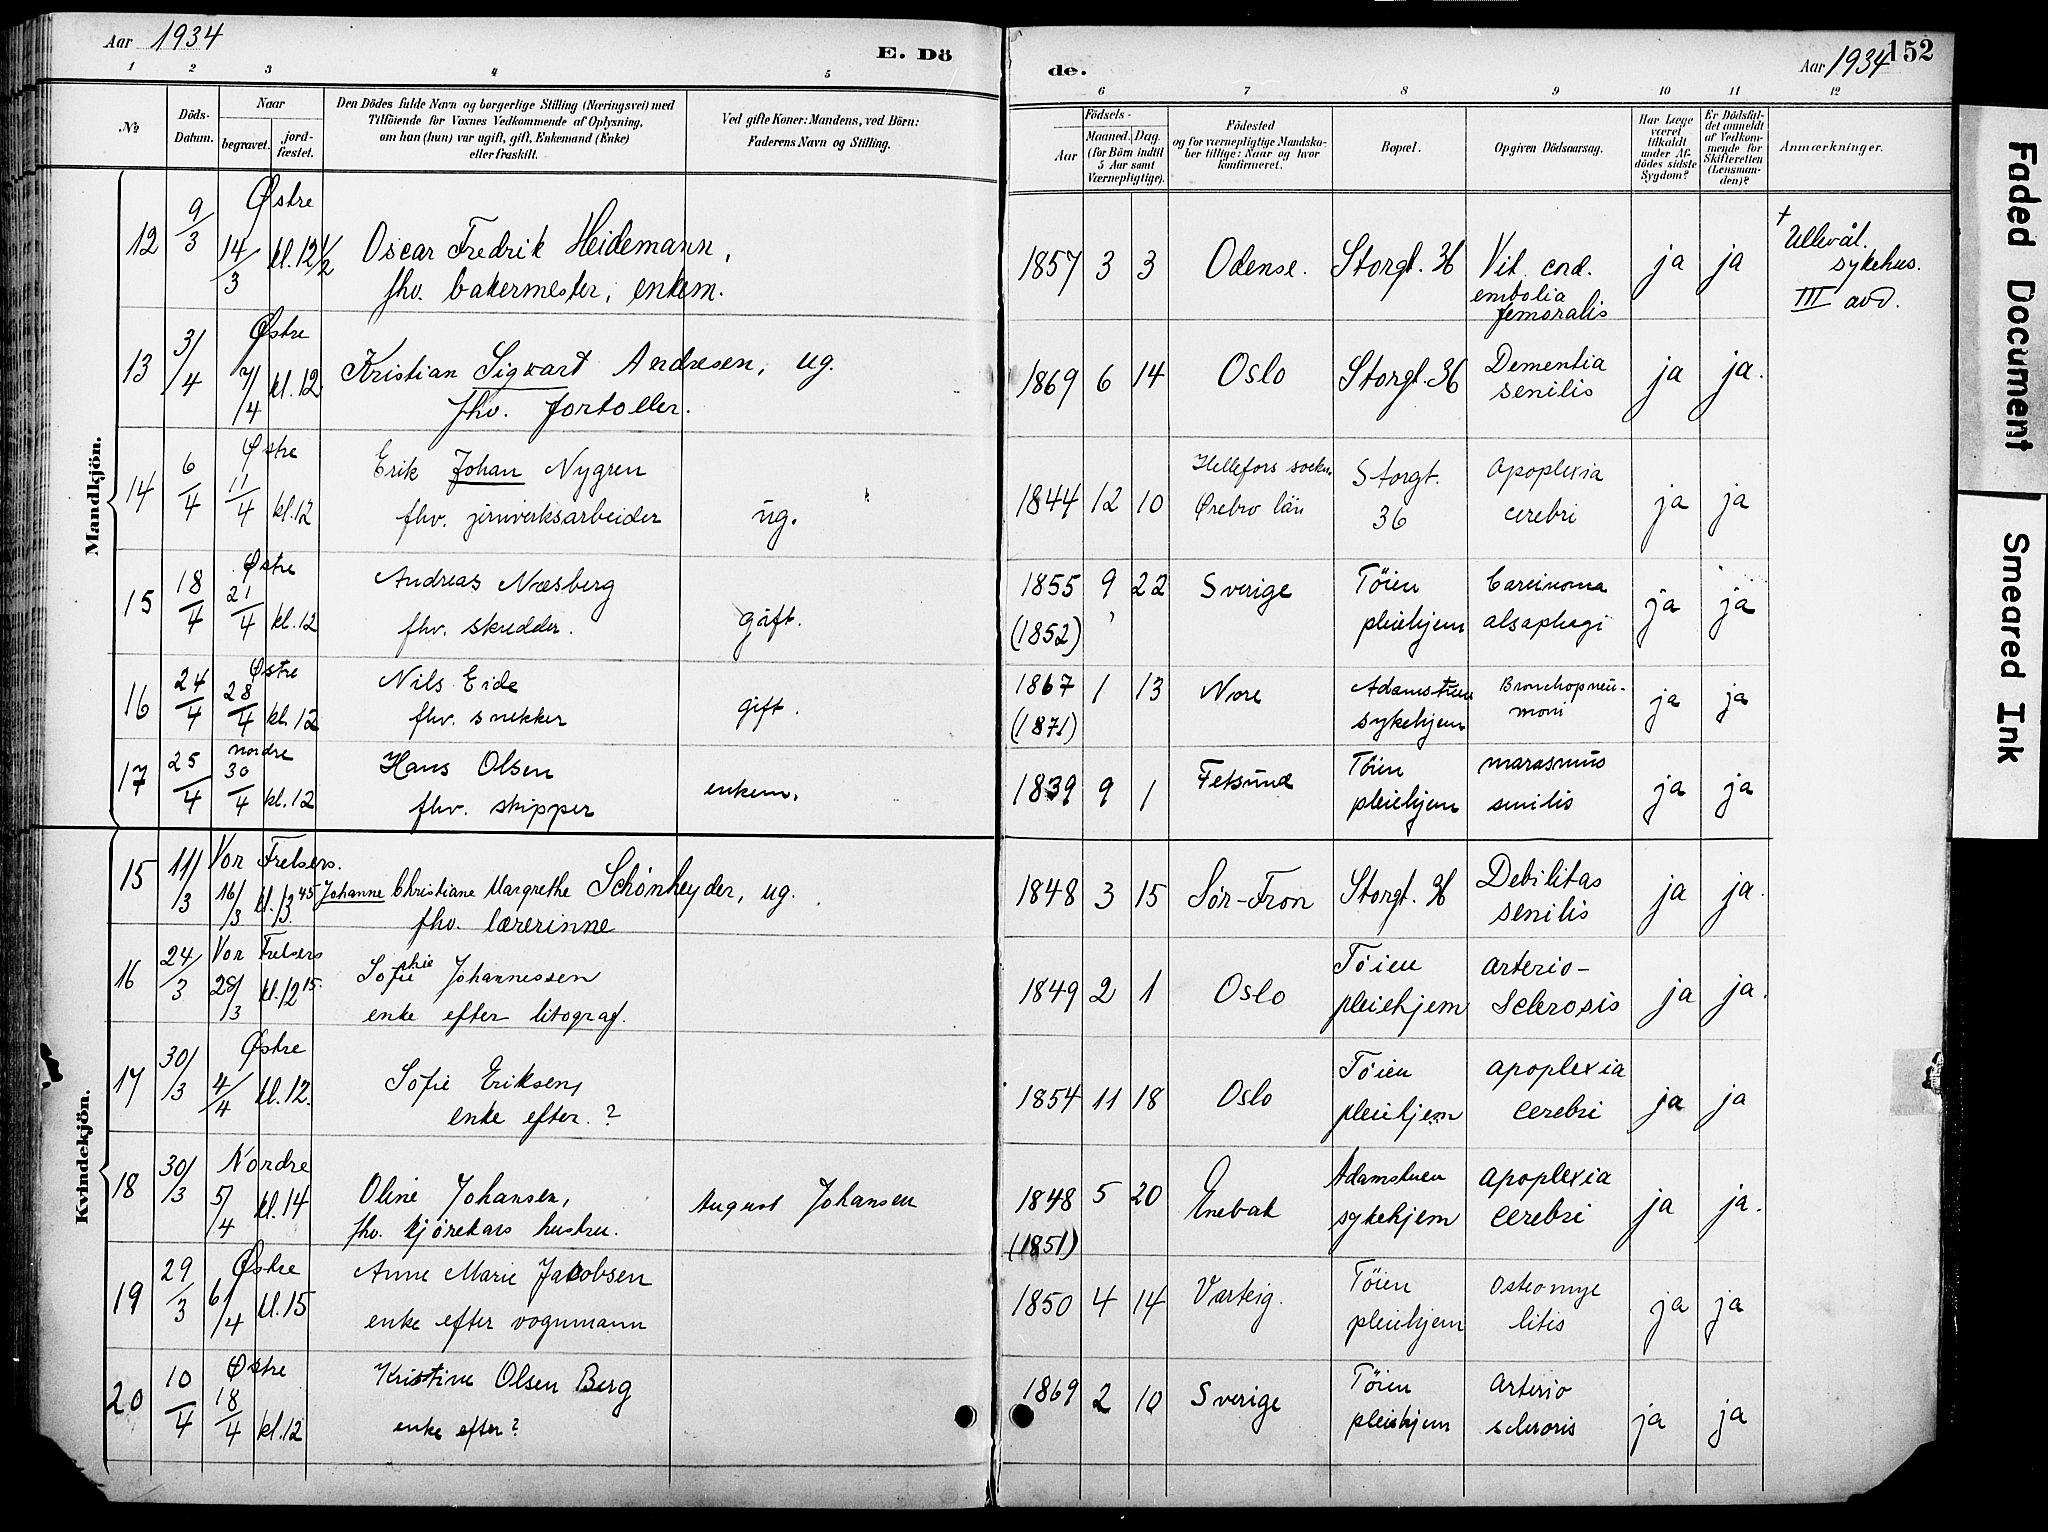 Aar 1934
E. Dö
de.
Aar 1934
152
1 2 3 4 5 6 7 8 9 10 11 12
№
Döds-
Datum.
Naar
begravet.
jord-
fæstet.
Den Dödes fulde Navn og borgerlige Stilling (Næringsvei) med
Tilföiende for Voxnes Vedkommende af Oplysning,
om han (hun) var ugift, gift, Enkemand (Enke)
eller fraskilt.
Ved gifte Koner: Mandens, ved Börn:
Faderens Navn og Stilling.
Födsels-
Aar
Maaned. Dag.
(for Börn indtil
5 Aar samt
Værnepligtige).
Födested
og for værnepligtige Mandska-
ber tillige: Naar og hvor
konfirmeret.
Bopæl.
Opgiven Dödsaarsag.
Har Læge
været
tilkaldt
under Af-
dödes sidste
Sygdom?
Er Dödsfal-
det anmeldt
af Vedkom-
mende for
Skifteretten
(Lensman-
den)?
Anmærkninger.
Mandkjön.
12 9/3 Østre 14/3 kl. 12 1/2 Oscar Fredrik Heidemann, 1857 3 3 Odense. Storgt. 36 Vit. cord. ja ja † Ullevål.
fhv. bakermester, enkem. embolia sykehus.
femoralis III avd.
13 3/4 Østre 7/4 kl. 12. Kristian Sigvart Andresen, ug. 1869 6 14 Oslo Storgt. 36 Dementia ja ja.
fhv. fortoller. senilis
14 6/4 Østre 11/4 kl. 12 Erik Johan Nygren 1844 12 10 Hellefors sockn. Storgt. Apoplexia ja ja
fhv. jernverksarbeider ug. Ørebro län 36 cerebri
15 18/4 Østre 21/4 kl. 12 Andreas Næsberg 1855 9 22 Sverige Töien Carcinoma ja ja
fhv. skredder. gift. (1852) pleiehjem alsaphagi
16 24/4 Østre 28/4 kl. 12 Nils Eide 1867 1 13 Nore Adamstuen Bronchopneu- ja ja
fhv. snekker gift. (1871) sykehjem moni
17 25/4 nordre 30/4 kl. 12 Hans Olsen 1839 9 1 Fetsund Töien marasmus ja ja
fhv. skipper enkem. pleiehjem senilis
Kvindekjön.
15 11/3 Vor Frelsers. 16/3 kl. 13 45 Johanne Christiane Margrethe Schönheyder, ug. 1848 3 15 Sör-Fron Storgt. 36 Debilitas ja ja.
fhv. lærerinne senilis
16 24/3 Vor Frelsers 28/3 kl. 12 15. Sofie phie Johannessen 1849 2 1 Oslo Töien arterio- ja ja.
enke efter litograf. pleiehjem sclerosis
17 30/3 Østre 4/4 kl. 12. Sofie Eriksen, 1854 11 18 Oslo Töien apoplexia ja ja
enke efter. ? pleiehjem cerebri
18 30/3 Nordre 5/4 kl. 14 Oline Johansen, August Johansen 1848 5 20 Enebak Adamstuen apoplexia ja ja.
fhv. kjörekars hustru. (1851) sykehjem cerebri
19 29/3 Østre 6/4 kl. 15 Anne Marie Jacobsen 1850 4 14 Varteig. Töien Osteomye ja ja
enke efter vognmann pleiehjem litis
20 10/4 Østre 18/4 kl. 12 Kristine Olsen Berg 1869 2 10 Sverige Töien Arterio ja ja
enke efter? pleiehjem scleroris
Faded Document
Smeared Ink